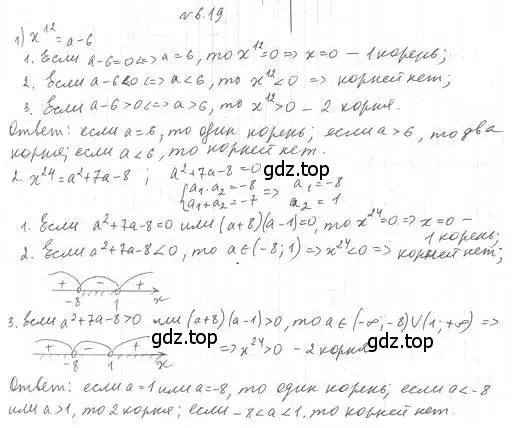 №6.19
1) x¹² = a-6
1. Если a-6=0 <=> a=6, то x¹²=0 => x=0 - 1 корень;
2. Если a-6<0 <=> a<6, то x¹²<0 => корней нет;
3. Если a-6>0 <=> a>6, то x¹²>0 - 2 корня.
Ответ: если a=6, то один корень; если a>6, то два
корня; если a<6, то корней нет.
2. x²⁴=a²+7a-8 ; a²+7a-8=0
{a₁·a₂=-8 => a₁=-8
a₁+a₂=-7 a₂=1
1. Если a²+7a-8=0 или (a+8)(a-1)=0, то x²⁴=0 => x=0 -
1 корень;
2. Если a²+7a-8<0, то a∈(-8; 1) => x²⁴<0 => корней нет;
+ - +
-8 1 x
3. Если a²+7a-8>0 или (a+8)(a-1)>0, то a∈(-∞;-8)∪(1;+∞) =>
+ - +
-8 1 x
=> x²⁴>0 - 2 корня
Ответ: если a=1 или a=-8, то один корень; если a<-8
или a>1, то 2 корня; если -8<a<1, то корней нет.
gdz.top
gdz.top
gdz.top
gdz.top